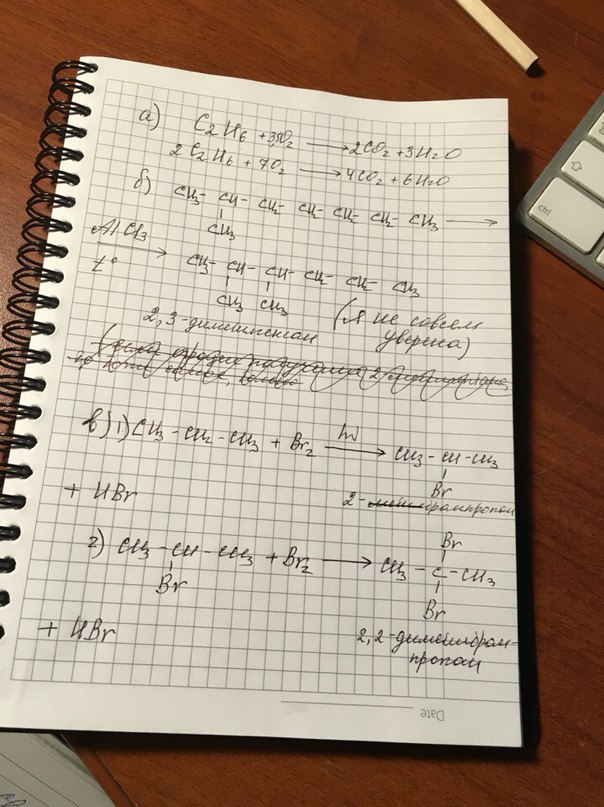 а) C2H6 + 3,5O2 → 2CO2 + 3H2O
2C2H6 + 7O2 → 4CO2 + 6H2O
б) CH3 - CH - CH2 - CH2 - CH2 - CH2 - CH3 →
CH3
AlCl3
t°
→ CH3 - CH - CH - CH2 - CH2 - CH3
CH3 CH3
2,3-диметилгексан
(Я не совсем
уверена)
в) 1) CH3 - CH2 - CH3 + Br2 hν → CH3 - CH - CH3
Br
+ HBr
2-бромпропан
2) CH3 - CH - CH3 + Br2 → CH3 - C - CH3
Br
Br
Br
+ HBr
2,2-дибром-
пропан
Date
ctrl